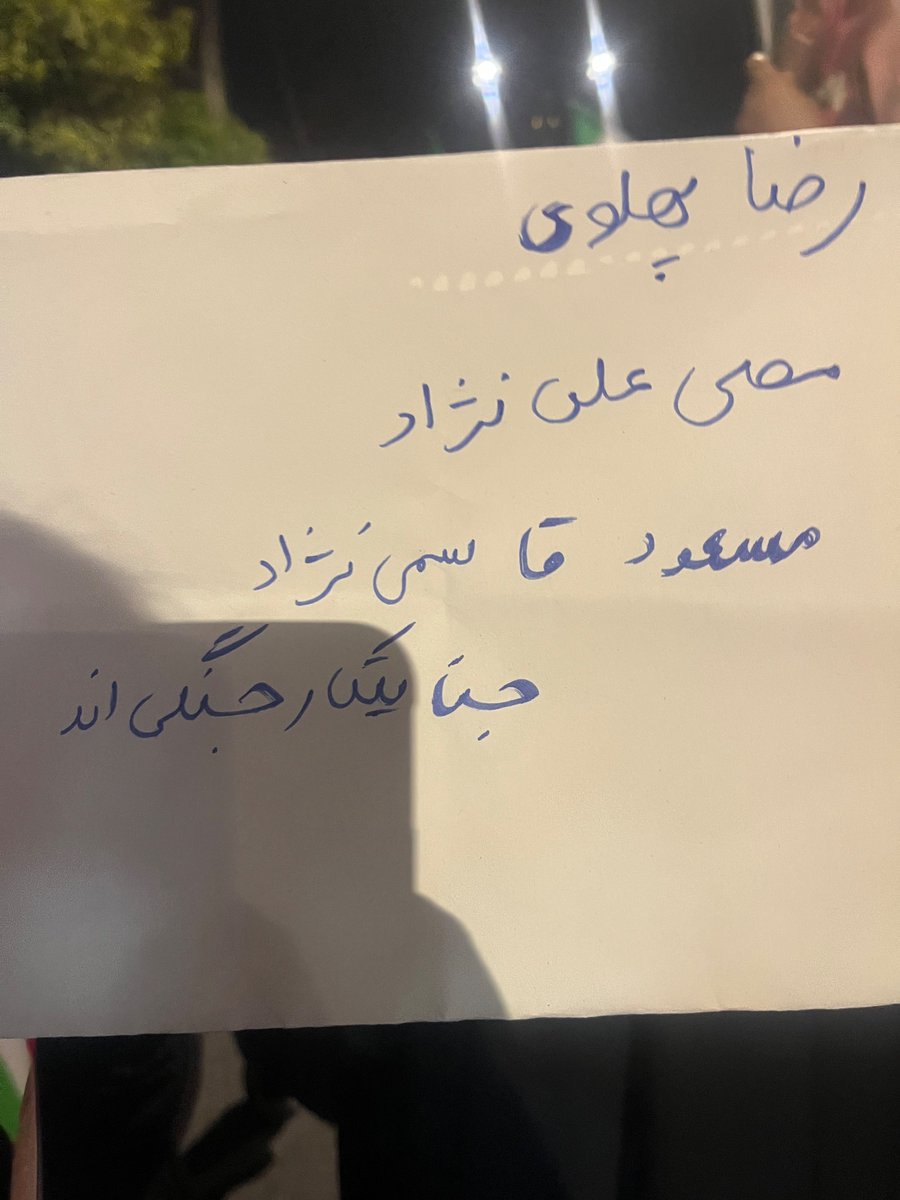 رضا پهلوی
مصی علی نژاد
مسعود قاسمی نژاد
جنایتکار جنگی اند